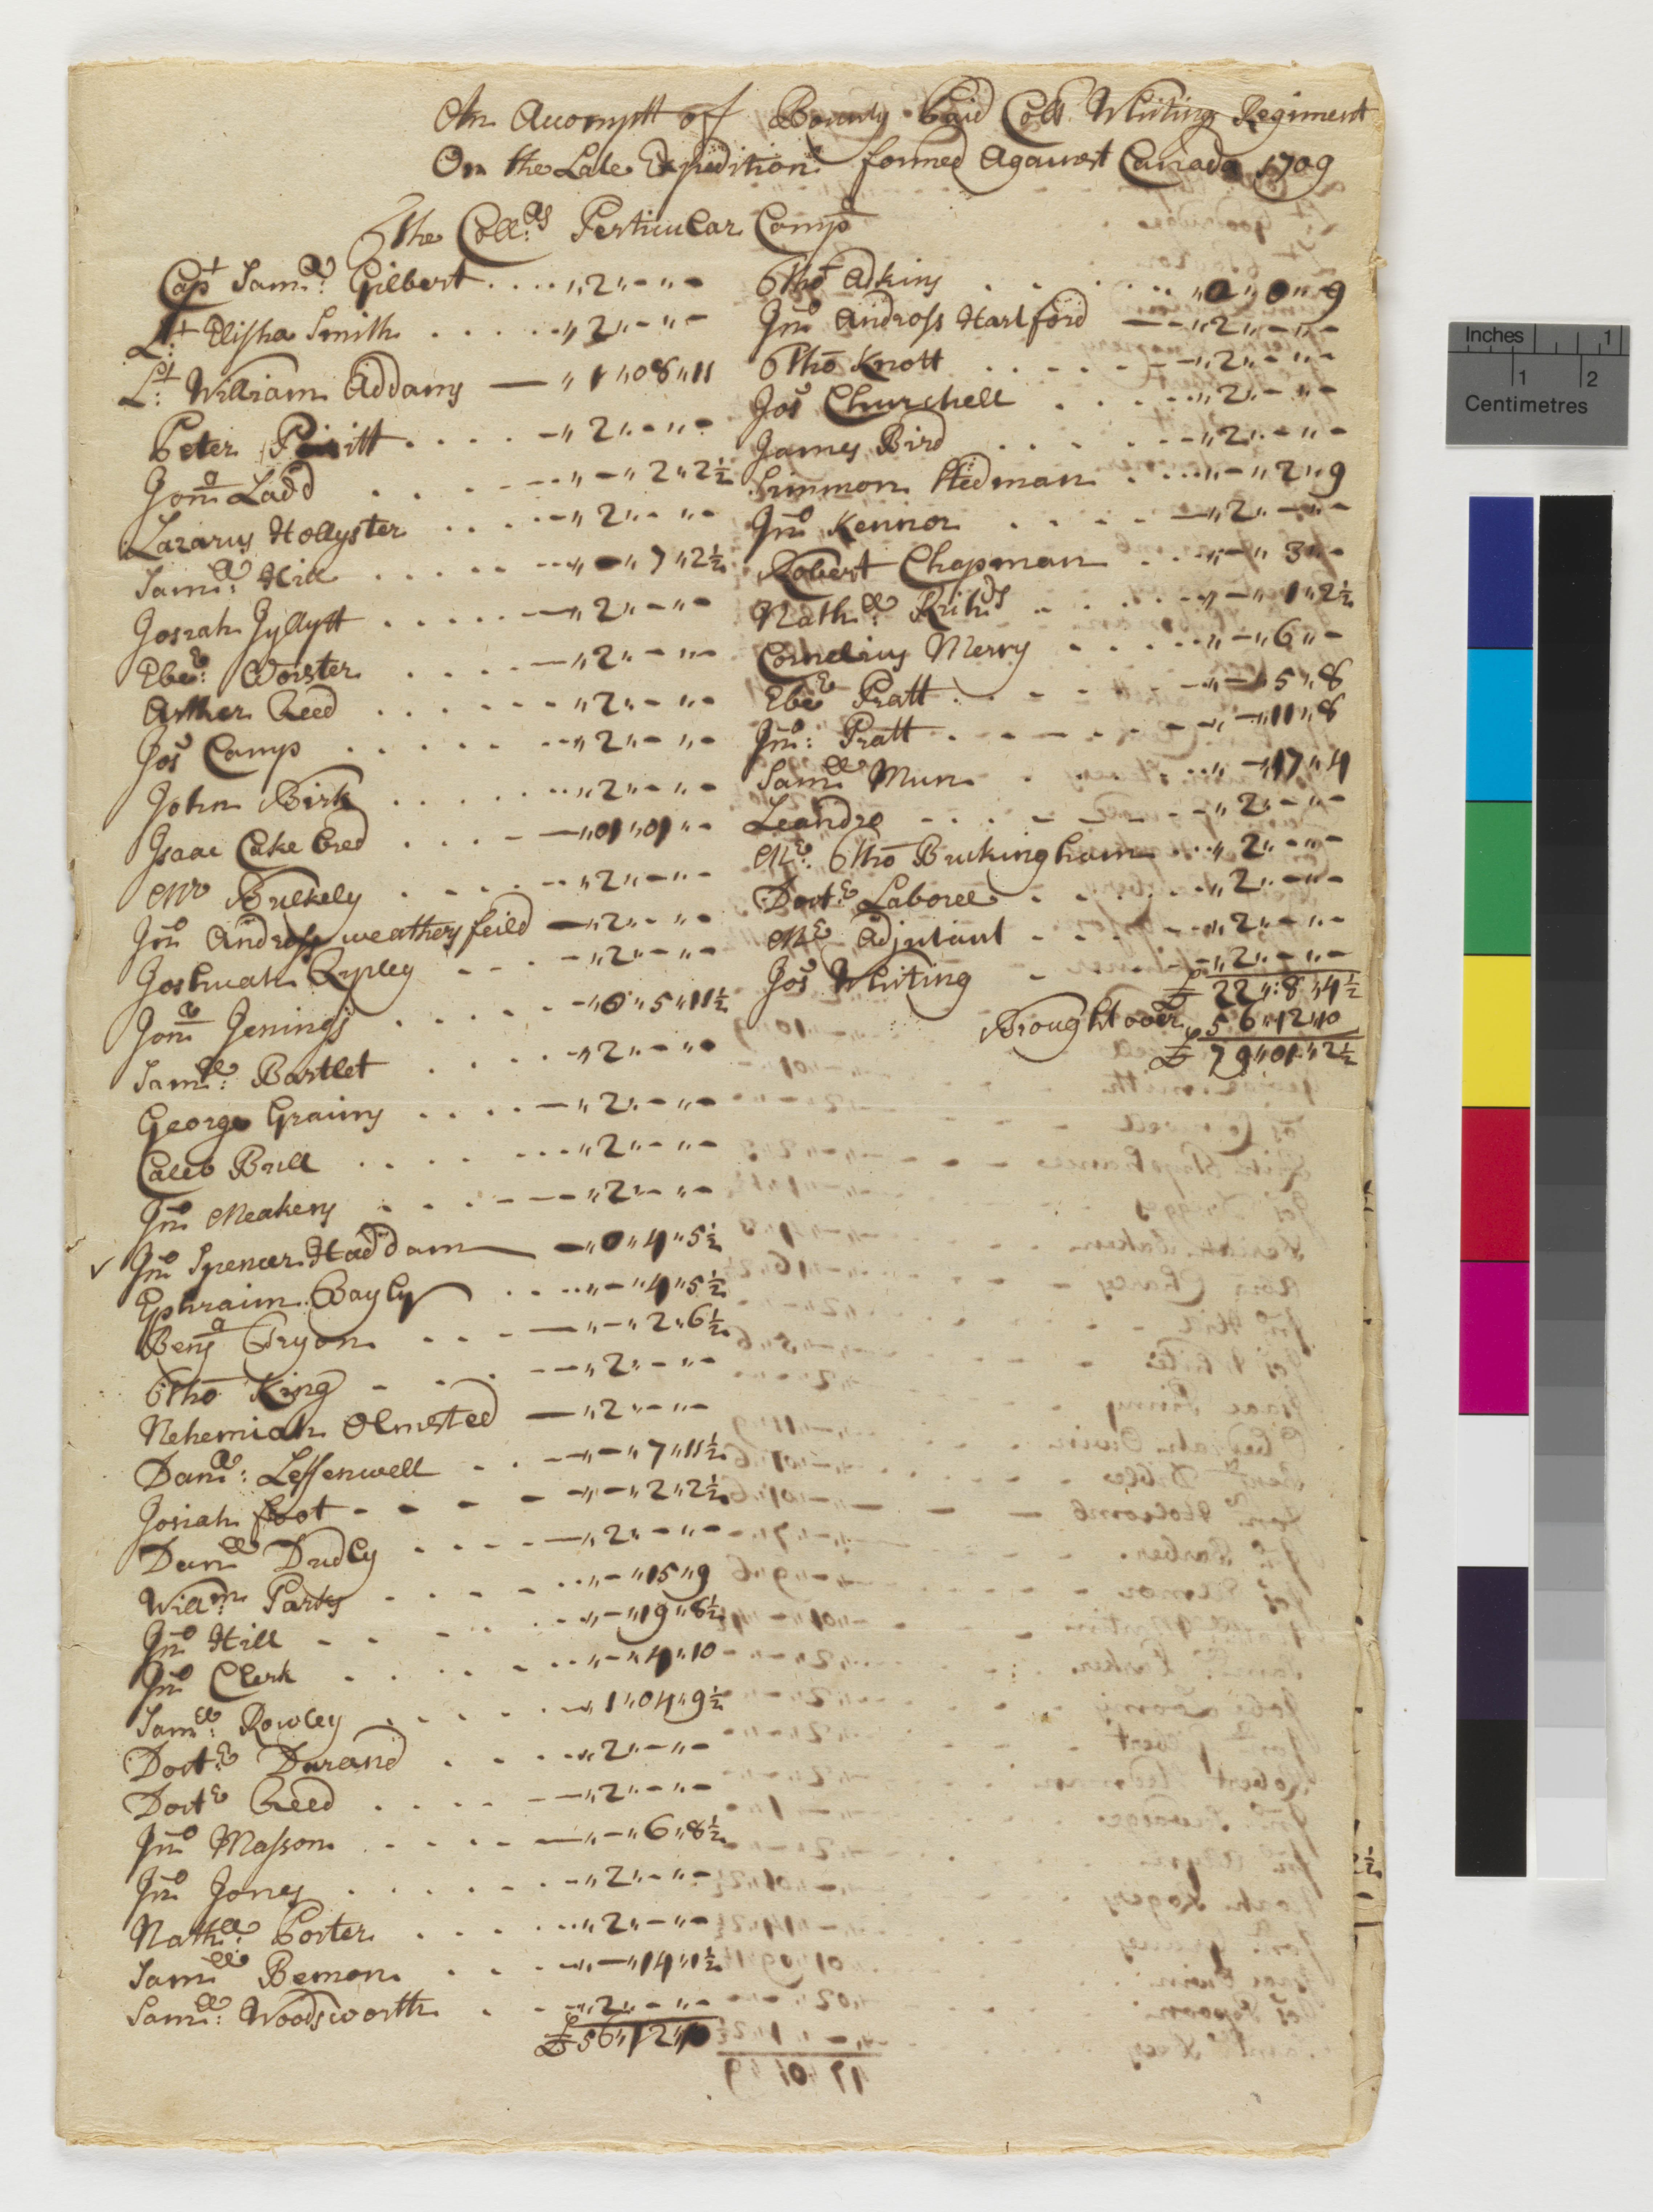 An Accomptt of Bounty Paid Coll Whiting Regiment
On the Late Expedition formed Against Canada 1709
The Coll:os Perticular Comp
Capt Samll: Gilbert . . . . „ 2 „ - „ -
Lt: Elisha Smith . . . . . „ 2 „ - „ -
Lt: William Addams — „ 1 „ 08 „ 11
Peter . . . . - „ 2 „ - „ -
Jona Ladd . . . . - „ - „ 2 „ 2½
Lazarus Hollyster . . . - „ 2 „ - „ -
Samll: Hill . . . . . „ - „ 7 „ 2½
Josiah Jyllytt . . . . . — „ 2 „ - „ -
Eber: Worster . . . . — „ 2 „ - „ -
Arther Reed . . . . . - „ 2 „ - „ -
Jos Camp . . . . . - „ 2 „ - „ -
John Birk . . . . . „ 2 „ - „ -
Isaac Cake bred . . . - — „ 01 „ 01 „ -
Mr Bulkely . . . . . „ 2 „ - „ -
Jno Andross weathersfeild — „ 2 „ - „ -
Joshuah Rypley - - - „ 2 „ - „ -
Jona Jenings . . . . - „ 0 „ 5 „ 11½
Samll: Bartlet . . . . - „ 2 „ - „ -
George Graims . . . . — „ 2 „ - „ -
Caleb Bull . . . . . . „ 2 „ - „ -
Jno Meakens . . . - — „ 2 „ - „ -
✓ Jno Spencer Haddam — „ 0 „ 4 „ 5½
Ephraim Bayly . . . . „ - „ 4 „ 5½
Benja Tryon . . . — „ - „ 2 „ 6½
Tho King - - . - — „ 2 „ - „ -
Nehemiah Olmsted — „ 2 „ - „ -
Danll: Leffenwell . . - „ - „ 7 „ 11½
Josiah foot - - - - „ - „ 2 „ 2½
Danll Dudly . . . . — „ 2 „ - „ -
Willm Parks . . . . . „ - „ 15 „ 9
Jno Hill - - . . . „ - „ 19 „ 8½
Jno Clerk . . . . . „ - „ 4 „ 10
Samll: Rowley . . . . . „ 1 „ 04 „ 9½
Doctr: Durand . . . . „ 2 „ - „ -
Doctr Reed . . . . - — „ 2 „ - „ -
Jno Masson . - . . — „ - „ 6 „ 8½
Jno Jones . . . . . - „ 2 „ - „ -
Nathll: Porter . . . . . „ 2 „ - „ -
Samll Bemon . . . . „ - „ 14 „ 1½
Samll: Woodsworth . - - „ 2 „ - „ -
£ 56 „ 12 „ 10
Tho Adkins . . . . . „ 0 „ 0 „ 9
Jno Andross Hartford — - „ 2 „ - „ -
Tho Knott . . . . - - „ 2 „ - „ -
Jos Churchell . . . . . „ 2 „ - „ -
James Bird . . . . - - „ 2 „ - „ -
Simmon Stedman . . . . „ - „ 2 „ 9
Jno Kennor . . . . — „ 2 „ - „ -
Robert Chapman . . . „ - „ 3 „ -
Nathll: . . . . - „ - „ 1 „ 2½
Cornelius Merry . . . . . „ - „ 6 „ -
Eber Pratt . . - - - - „ - „ 5 „ 8
Jno: Pratt . - - - - „ - „ 11 „ 8
Samll Mun . . . . „ - „ 17 „ 4
Leandre - - . - - - - „ 2 „ - „ -
Mr: Tho Buckingham . . . „ 2 „ - „ -
Doctr Laborell - . . . . „ 2 „ - „ -
Mr Adjutant - . . - - „ 2 „ - „ -
Jos Whiting - . - „ 2 „ - „ -
£ 22 „: 8 „ 4½
Brought over 56 „ 12 „ 10
£ 79 „ 01 „ 2½
Inches 1
1 2
Centimetres